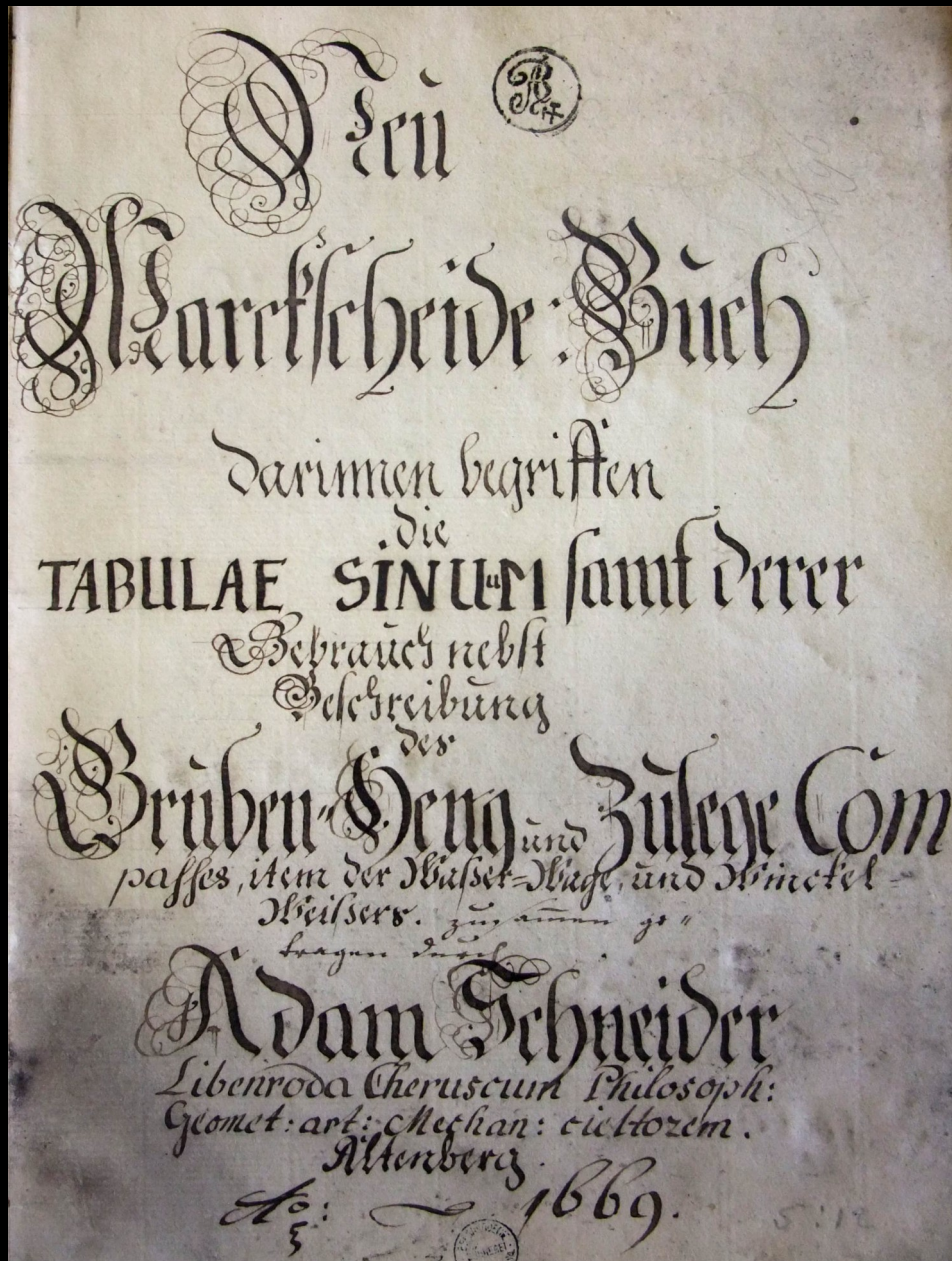 Neu
Marckscheide:Buch
darinnen begriffen
die
TABULAE SINUUM samt derer
Gebrauch nebst
Beschreibung
des
Gruben-Heng und Zulege Com
passes, item der Wasser-Wage, und Winckel-
Weißers. zusammen ge-
tragen durch
Adam Schneider
Libenroda Cheruscum Philosoph:
Geomet: art: Mechan:
Altenberg.
Ao: 1669.